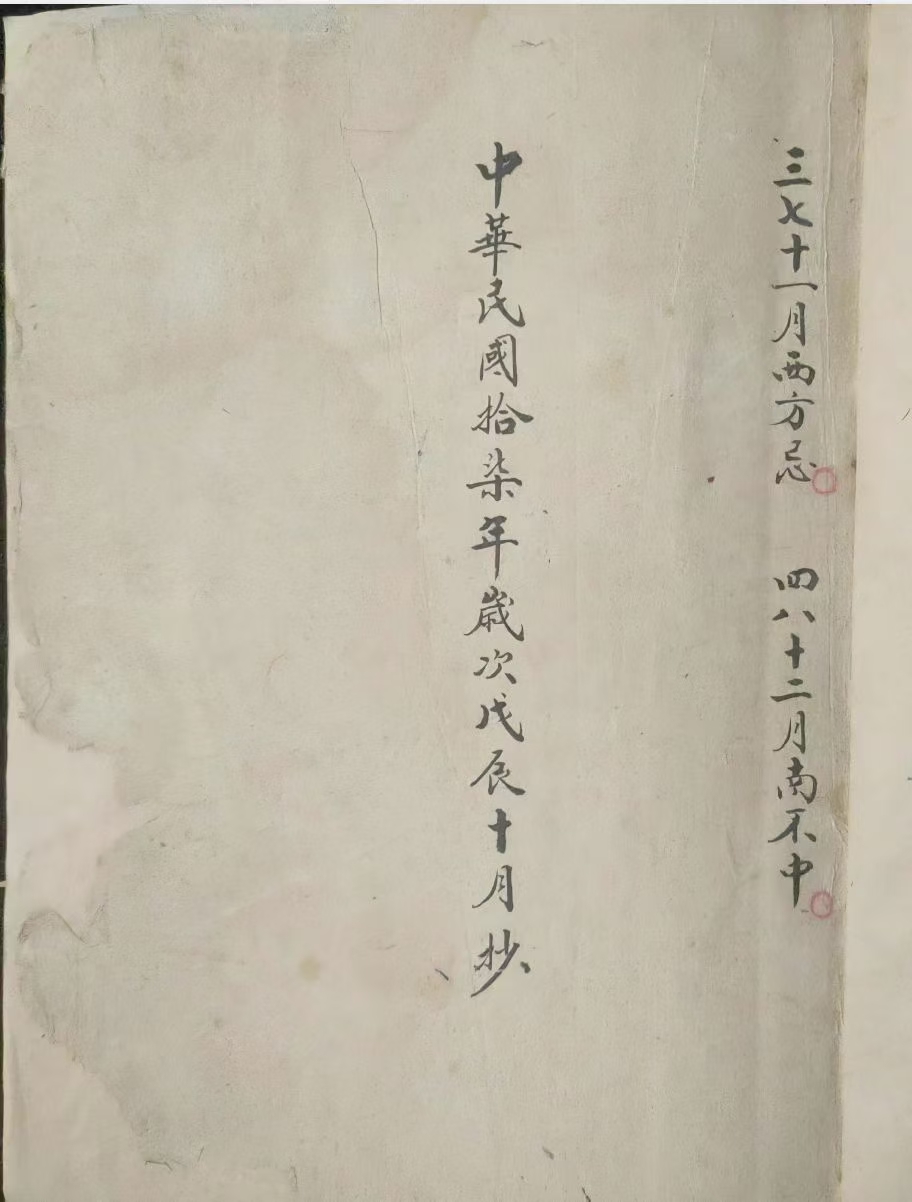 三七十一月西方忌 四八十二月南不中
中華民國拾柒年歲次戊辰十月抄